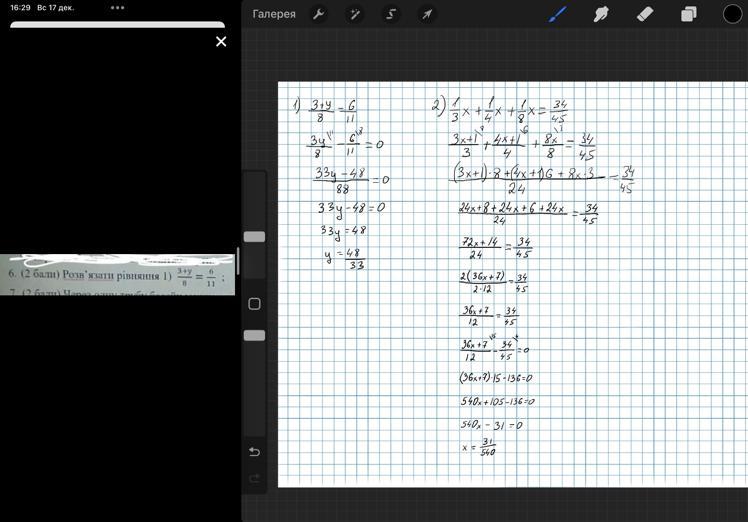 16:29 Вс 17 дек.
Галерея
6. (2 бали) Розв'язати рівняння 1) 3+y/8 = 6/11 ;
7. (2 бали) Через одну трубу
1) 3+y/8 = 6/11
3y\11/8 - 6\8/11 = 0
33y-48/88 = 0
33y-48=0
33y=48
y = 48/33
2) 1/3x + 1/4x + 1/8x = 34/45
3x+1\8/3 + 4x+1\6/4 + 8x\3/8 = 34/45
(3x+1)·8+(4x+1)6+8x·3/24 = 34/45
24x+8+24x+6+24x/24 = 34/45
72x+14/24 = 34/45
2(36x+7)/2·12 = 34/45
36x+7/12 = 34/45
36x+7\15/12 - 34\4/45 = 0
(36x+7)·15-136=0
540x+105-136=0
540x-31=0
x = 31/540